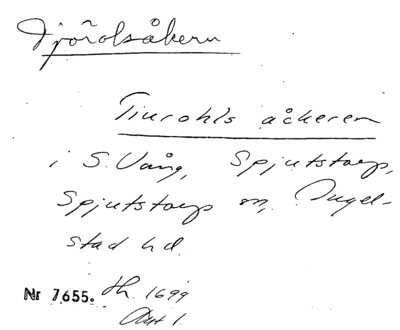 Tjördsåkern
Tiurohls åckeren
i S. Vång, Spjutstorp,
Spjutstorp sn, Ingel-
stad hd.
Nr 7655. Lh. 1699
Akt 1.